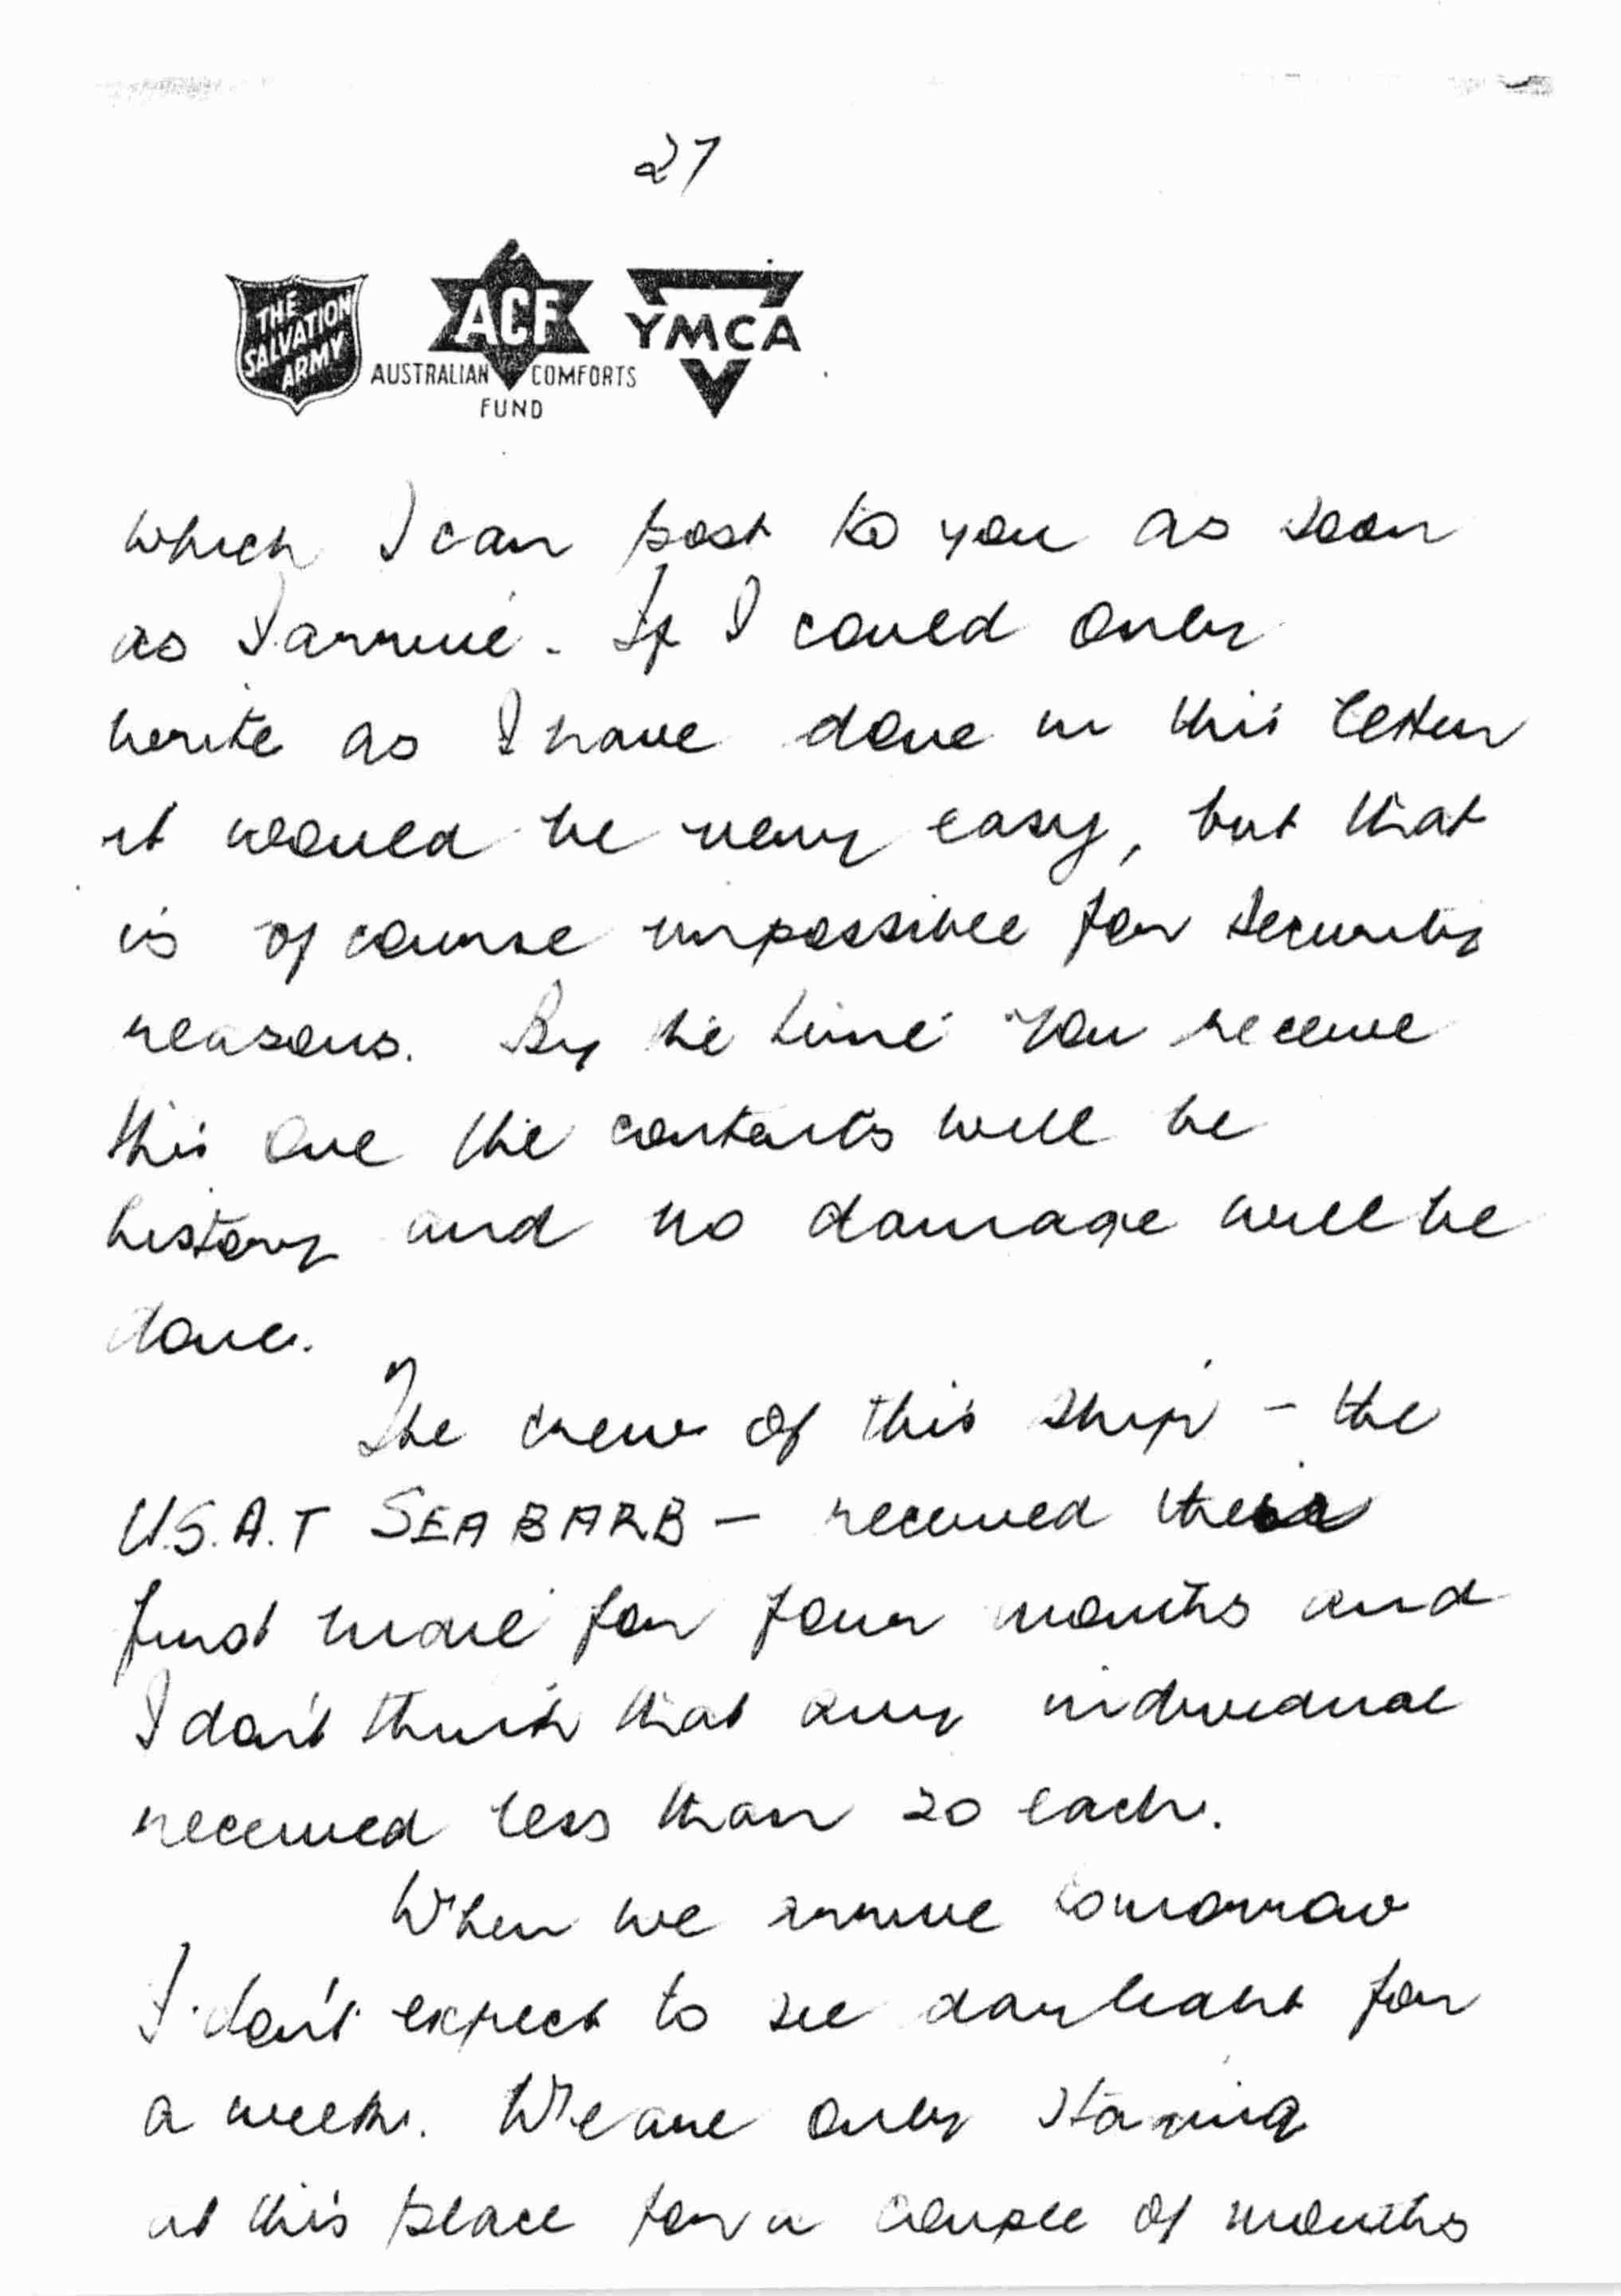 27
THE
SALVATION
ARMY
ACF
YMCA
AUSTRALIAN COMFORTS
FUND
which I can post to you as soon
as I arrive. If I could only
write as I have done in this letter
it would be very easy, but that
is of course impossible for security
reasons. By the time you receive
this one the contents will be
history and no damage will be
done.
The crew of this ship - the
U.S.A.T SEA BARB - received their
first mail for four months and
I don't think that any individual
received less than 20 each.
When we arrive tomorrow
I don't expect to see daylight for
a week. We are only staying
at this place for a couple of months